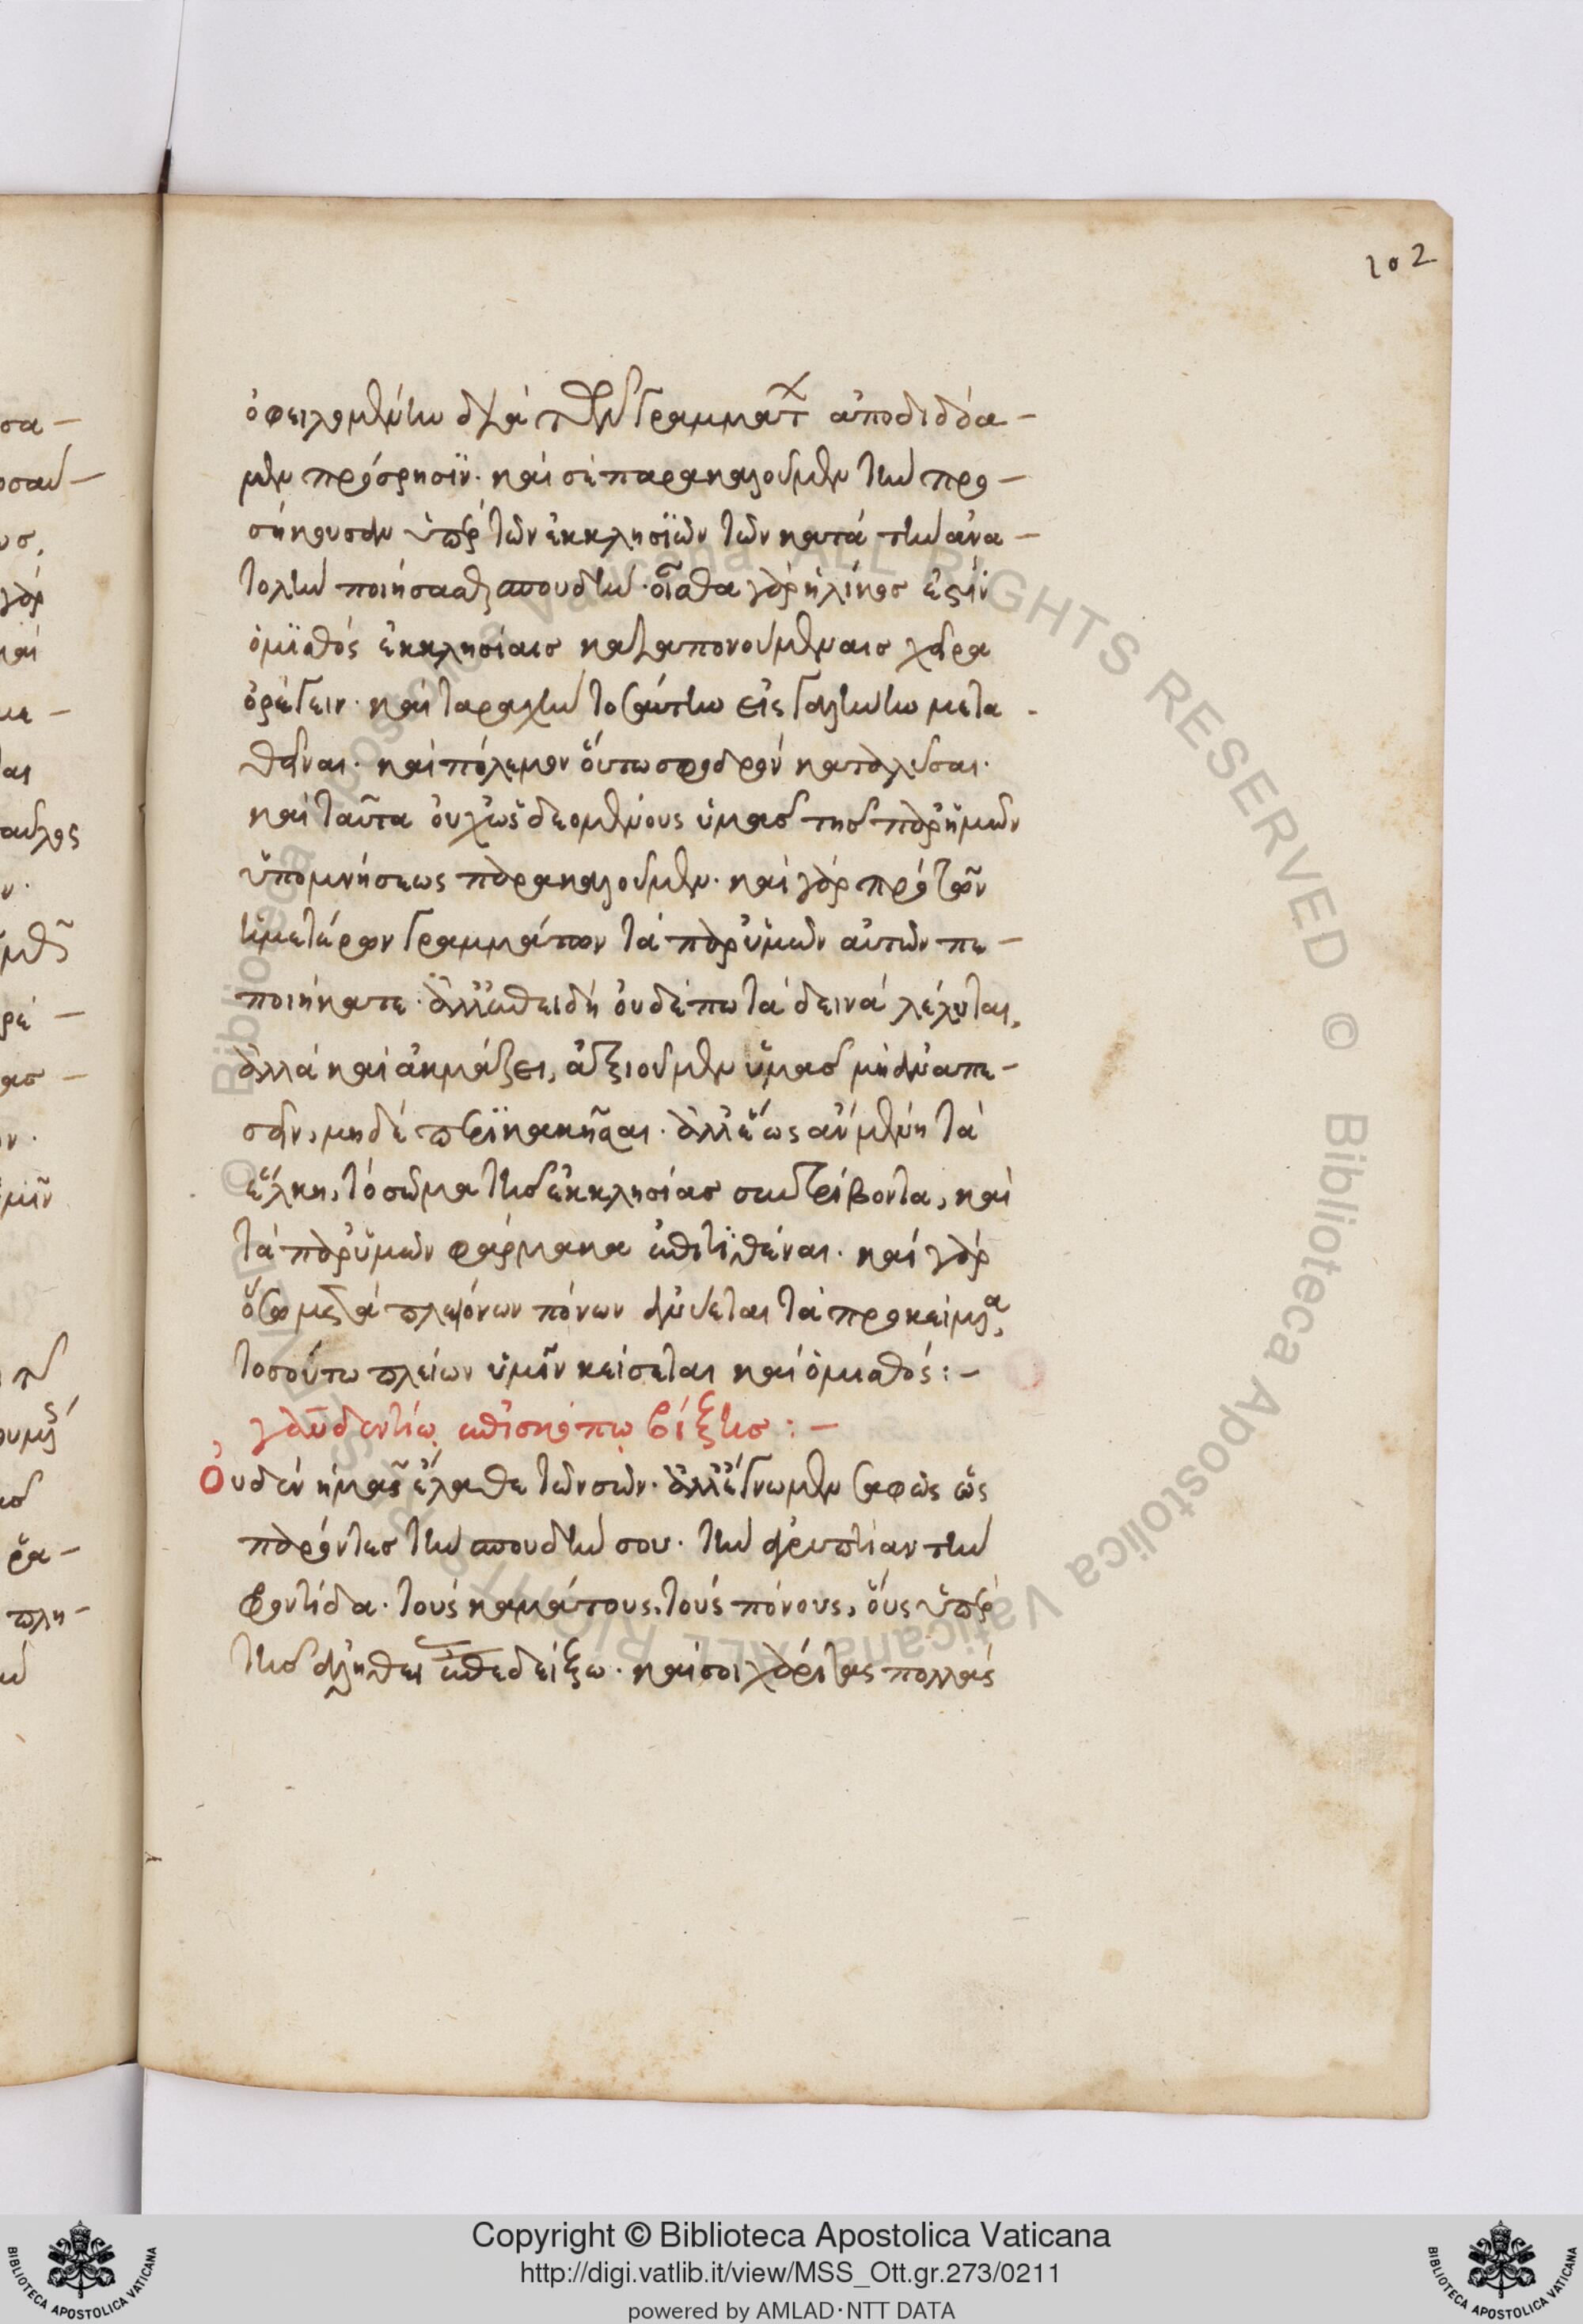 102
ὀφειλομένην διὰ τῶν γραμμάτων ἀποδιδόα-
μεν πρόσρησϊν· καὶ σὲ παρακαλοῦμεν τὴν προ-
σήκουσαν ὑπὲρ τῶν ἐκκλησϊῶν τῶν κατὰ τὴν ἀνα-
τολὴν ποιήσασθαι σπουδὴν· οἶσθα γὰρ ἡλίκος ἐστὶν
ὁ μϊσθός ἐκκλησίαις καταπονουμέναις χεῖρα
ὀρέγειν· καὶ ταραχὴν τοσαύτην εἰς γαλήνην μετα-
θεῖναι· καὶ πόλεμον οὕτω σφοδρὸν καταλῦσαι·
καὶ ταῦτα οὐχ ὡς δεομένους ὑμᾶς τῆς παρ' ἡμῶν
ὑπομνήσεως παρακαλοῦμεν· καὶ γὰρ πρὸ τῶν
ἡμετέρων γραμμάτων τὰ παρ' ὑμῶν αὐτῶν πε-
ποιήκατε· ἀλλ' ἐπειδὴ οὐδέπω τὰ δεινὰ λέλυται,
ἀλλὰ καὶ ἀκμάζει, ἀξιοῦμεν ὑμᾶς μὴ ἀναπε-
σεῖν, μηδὲ περϊκακῆσαι· ἀλλ' ἕως ἂν μένη τὰ
ἕλκη, τὸ σῶμα τῆς ἐκκλησίας συντρίβοντα, καὶ
τὰ παρ' ὑμῶν φάρμακα ἐπιτϊθέναι· καὶ γὰρ
ὅσω μετὰ πλειόνων πόνων ἀνύεται τὰ προκείμενα,
τοσούτω πλείων ὑμῖν κείσεται καὶ ὁ μισθός:-
γαυδεντίῳ ἐπισκόπῳ βρίξης:-
Οὐδὲν ἡμᾶς ἔλαθε τῶν σῶν· ἀλλ' ἔγνωμεν σαφῶς ὡς
παρόντες τὴν σπουδήν σου· τὴν ἀγρυπνίαν τὴν
φροντίδα· τοὺς καμάτους, τοὺς πόνους, οὓς ὑπὲρ
τῆς ἀληθείας ἐπεδείξω· καί σοι χάριτας πολλάς
Copyright © Biblioteca Apostolica Vaticana
http://digi.vatlib.it/view/MSS_Ott.gr.273/0211
powered by AMLAD·NTT DATA